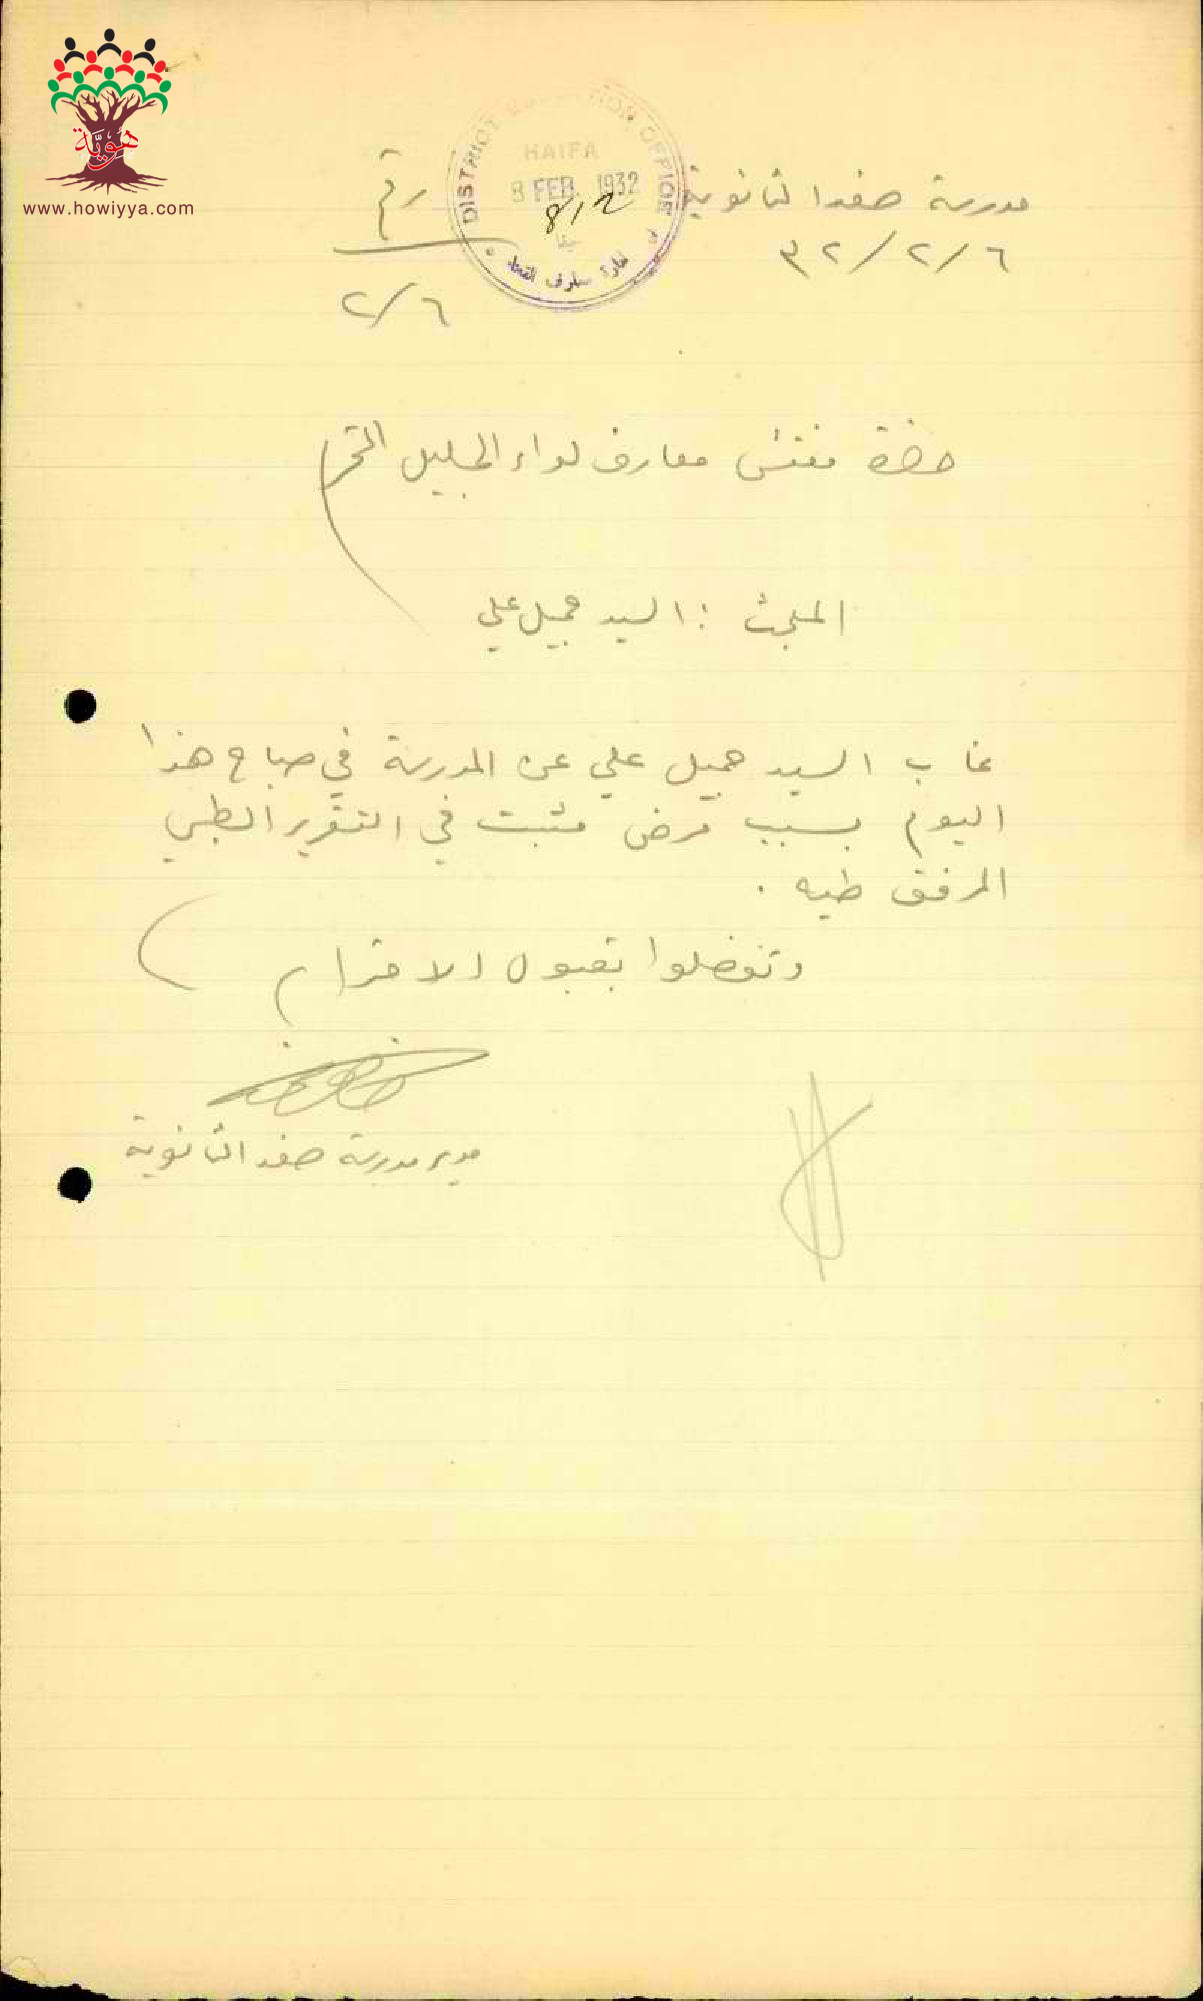 هوية
www.howiyya.com
DISTRICT EDUCATION OFFICE
HAIFA
8 FEB. 1932
8/2
مدرسة صفد الثانوية
٣٢/٢/٦
رقم
٢/٦
حضرة مفتش معارف لواء الجليل المحترم
المبحث : السيد جميل علي
غاب السيد جميل علي عن المدرسة في صباح هذا
اليوم بسبب مرض مثبت في التقرير الطبي
المرفق طيه .
وتفضلوا بقبول الاحترام
مدير مدرسة صفد الثانوية